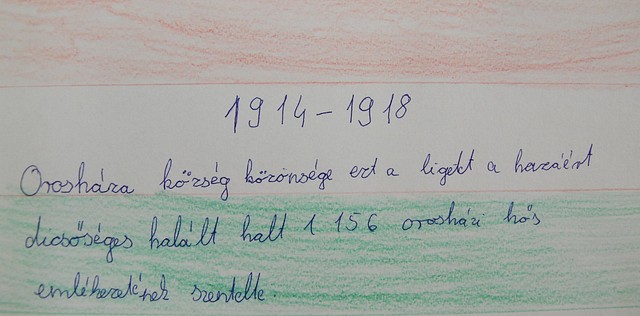 1914-1918
Orosháza község közönsége ezt a ligetet a hazáért
dicsőséges halált halt 1 156 orosházi hős
emlékezetének szentelte.